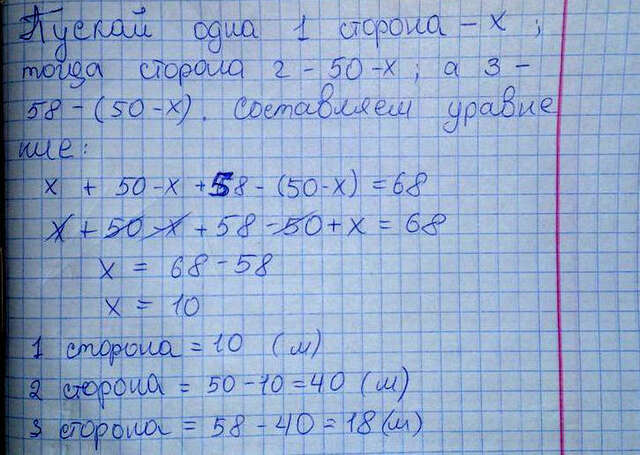 Пускай одна 1 сторона - х ;
тогда сторола 2 - 50-х ; а 3 -
58 - (50 - х) . Составляем уравне
ние :
х + 50-х + 58 - (50-х) = 68
х + 50 - х + 58 - 50 + х = 68
х = 68 - 58
х = 10
1 сторона = 10 (м)
2 сторона = 50 - 10 = 40 (м)
3 сторона = 58 - 40 = 18 (м)